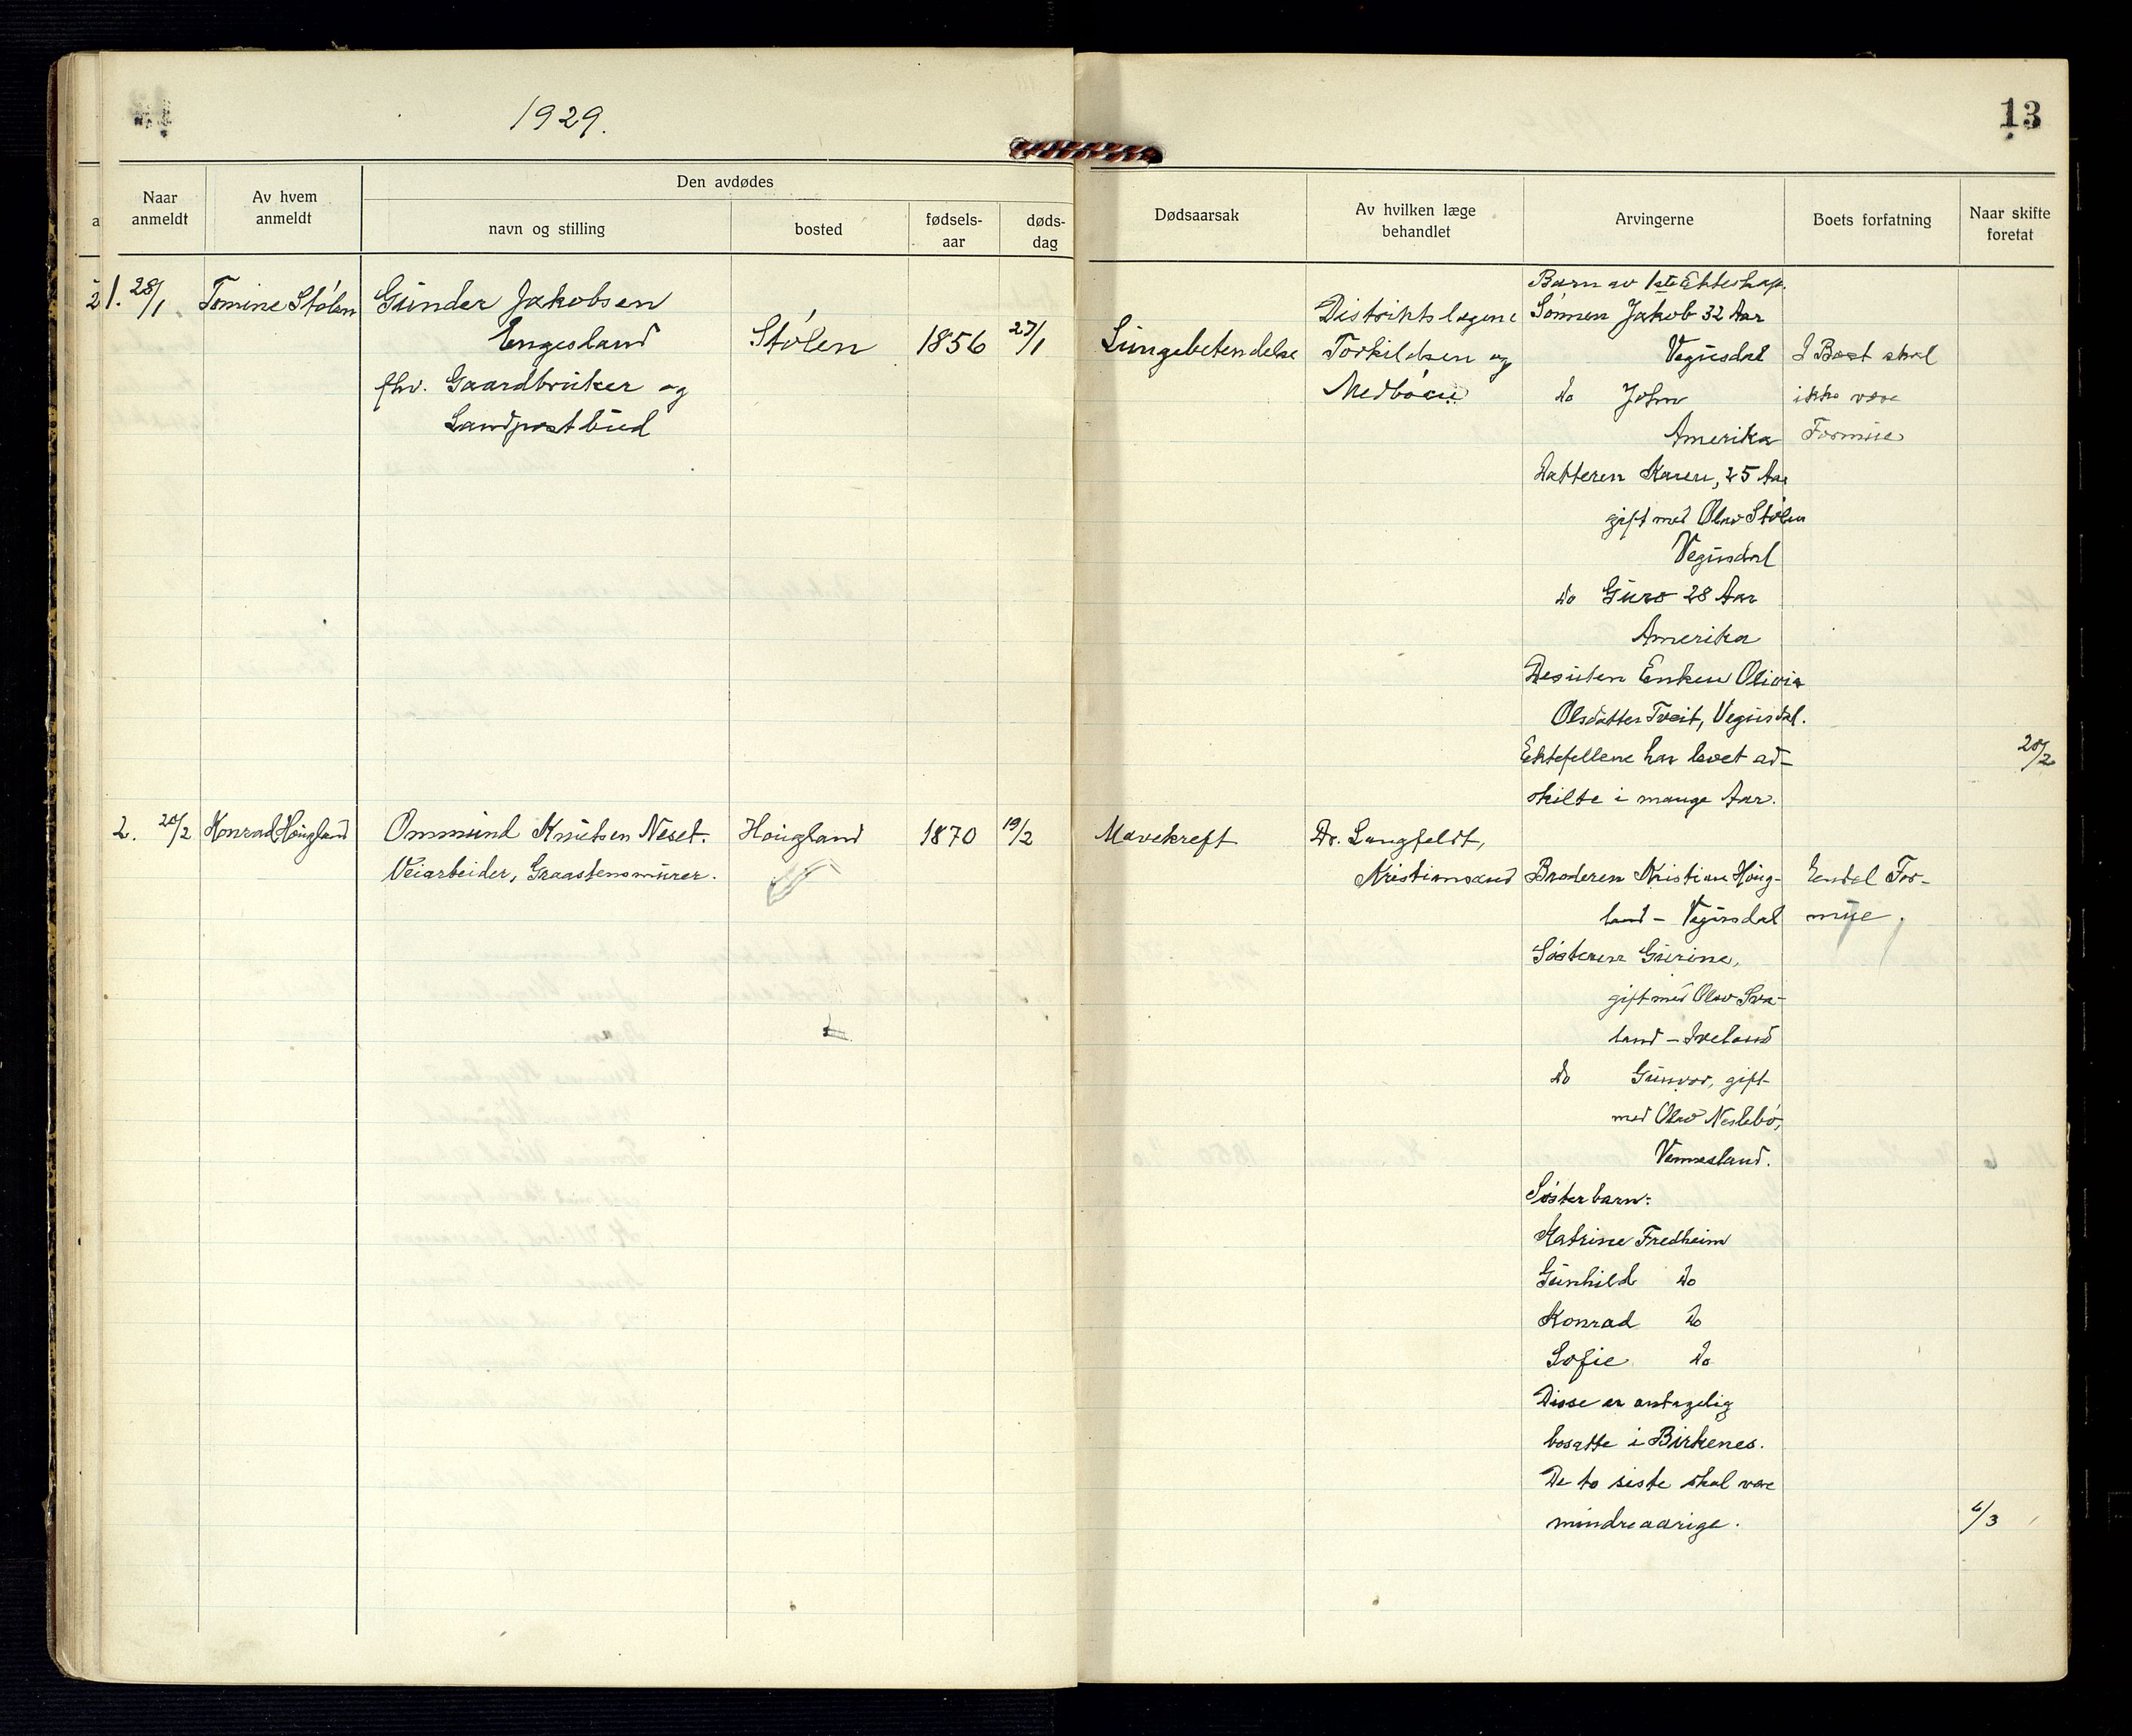 1929.
13
Naar anmeldt
Av hvem anmeldt
Den avdødes
navn og stilling
bosted
fødsels-aar
døds-dag
Dødsaarsak
Av hvilken læge behandlet
Arvingerne
Boets forfatning
Naar skifte foretat
1. 28/1
Tomine Stölen
Gunder Jakobsen
Engesland
fhv. Gaardbruker og
Landpostbud
Stölen
1856
27/1
Lungebetendelse
Distriktslægene
Torkildsen og
Medböeu
Barn av 1ste Ekteskap.
Sönnen Jakob 32 Aar
Vegusdal
do John
Amerika
Datteren Karen, 25 Aar
gift med Olav Stölen
Vegusdal
do Guro 28 Aar
Amerika
Desuten Enken Olivia
Olsdatter Tveit, Vegusdal.
Ektefellene har levet ad-
skilte i mange Aar.
I Boet skal
ikke være
Formue
20/2
2. 20/2
Konrad Höugland
Ommund Knutsen Neset.
Veiarbeider, Graastensmurer.
Höugland
1870
19/2
Mavekreft
Dr. Langfeldt,
Kristiansand
Broderen Kristian Höug-
land - Vegusdal
Sösteren Gurine,
gift med Olav Sva-
land - Iveland
do Gunvor, gift
med Olav Neslebö,
Vennesland.
Sösterbarn:
Katrine Fredheim
Gunhild do
Konrad do
Sofie do
Disse er antagelig
bosatte i Birkenes.
De to siste skal være
mindreaarige.
Eendel For-
mue.
6/3